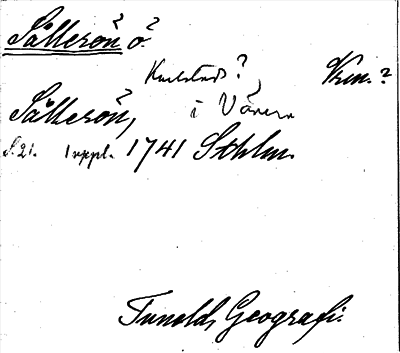 ?  ?
Sälterön ö.
Karlstad? Vrm.?
?
Sälterön, i Vänern
S. 21. 1 uppl. 1741 Sthlm.
Tunelds Geografi.